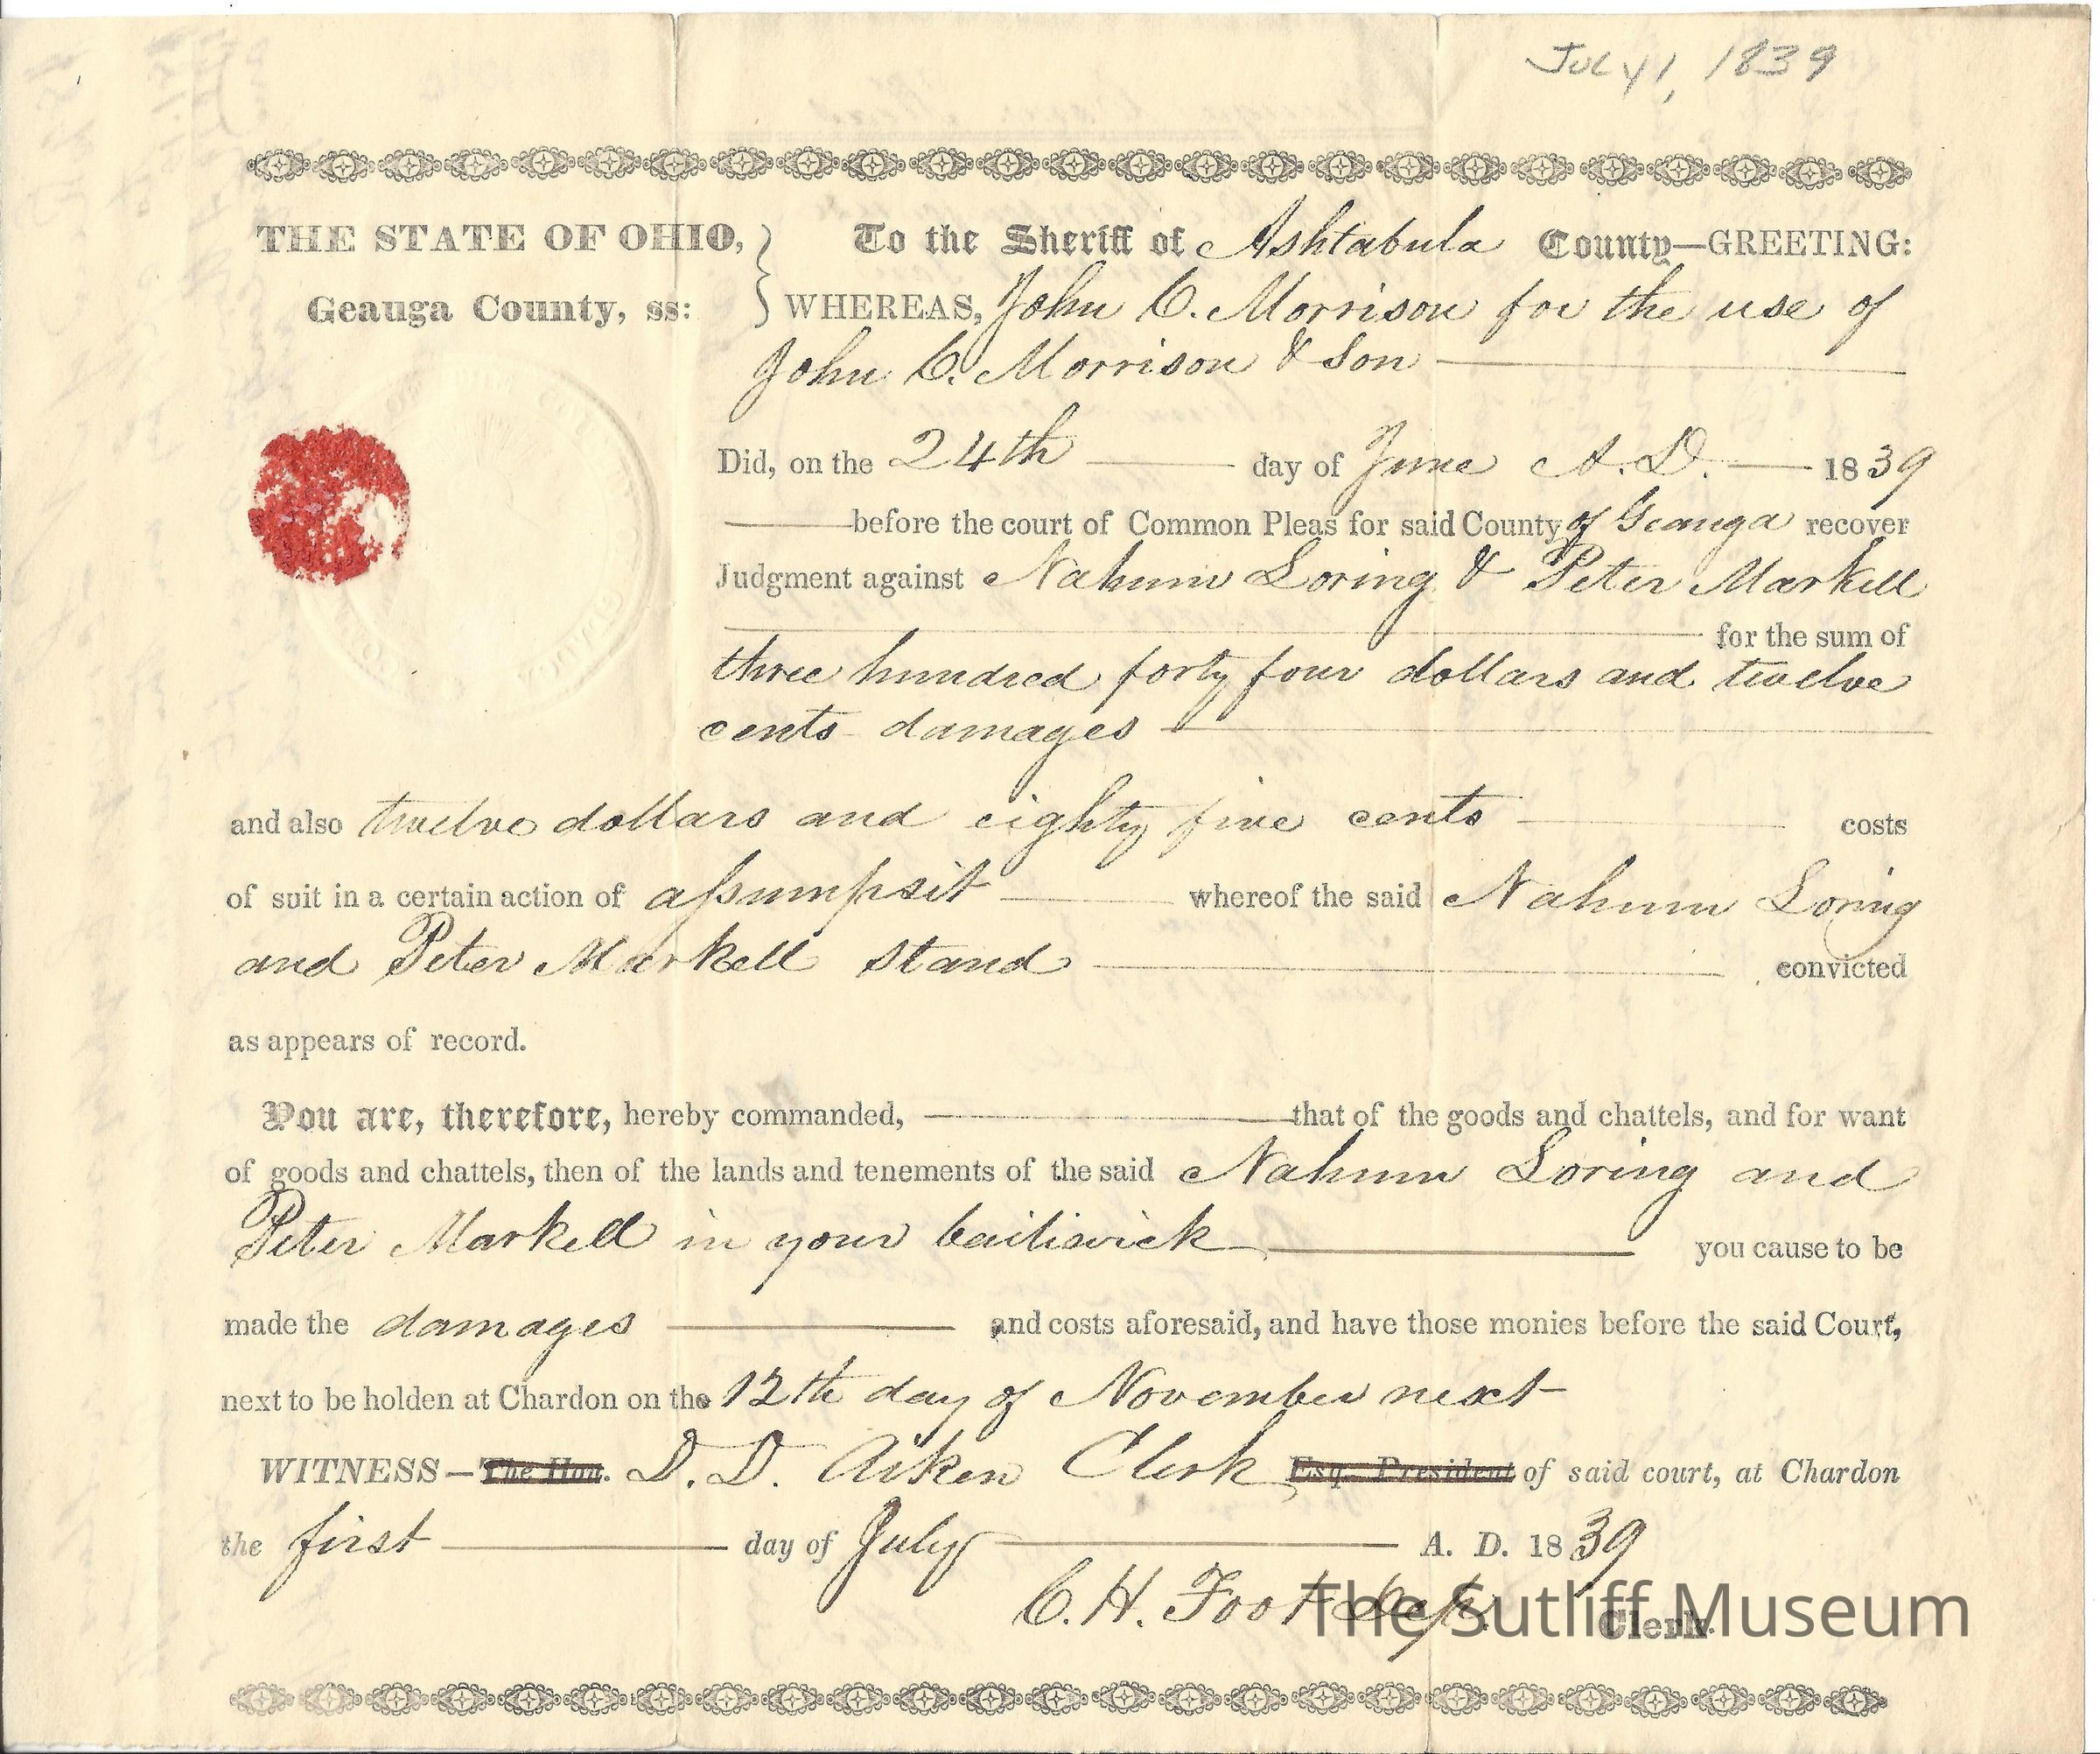 JULY 1, 1839
THE STATE OF OHIO, To the Sheriff of Ashtabula County—GREETING:
Geauga County, ss: WHEREAS, John C. Morrison for the use of
John C. Morrison & Son
Did, on the 24th day of June A.D. 1839
before the court of Common Pleas for said County of Geauga recover
Judgment against Nahum Loring & Peter Markell
for the sum of
three hundred forty four dollars and twelve
cents damages
and also twelve dollars and eighty five cents costs
of suit in a certain action of assumpsit whereof the said Nahum Loring
and Peter Markell stand convicted
as appears of record.
You are, therefore, hereby commanded, that of the goods and chattels, and for want
of goods and chattels, then of the lands and tenements of the said Nahum Loring and
Peter Markell in your bailiwick you cause to be
made the damages and costs aforesaid, and have those monies before the said Court,
next to be holden at Chardon on the 12th day of November next
WITNESS—The Hon. D. D. Aiken Clerk Esq. President of said court, at Chardon
the first day of July A. D. 1839
C. H. Foot Dep. Clerk.
The Sutliff Museum